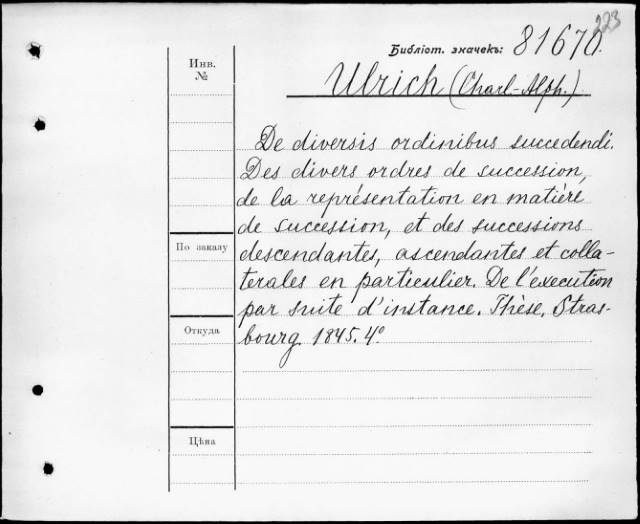 223
Библіот. значекъ: 81670.
Инв.
№
Ulrich (Charl-Alph.)
De diversis ordinibus succedendi.
Des divers ordres de succession,
de la représentation en matière
de succession, et des successions
По заказу
descendantes, ascendantes et colla-
terales en particulier. De l'execution
par suite d'instance. Thèse, Stras-
Откуда
bourg 1845. 4°
Цѣна